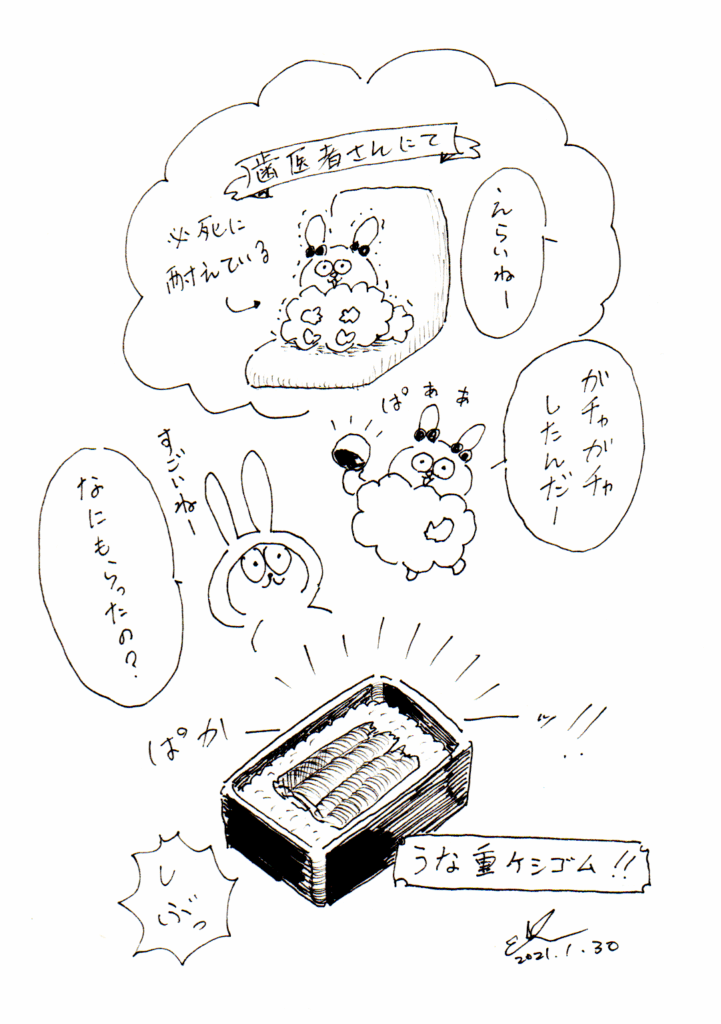 歯医者さんにて
えらいねー
必死に
耐えている
ぱぁぁ
がチャがチャ
したんだー
すごいねー
なにもらったの?
ぱかーーッ!!
うな重ケシゴム!!
しぶっ
2021.1.30